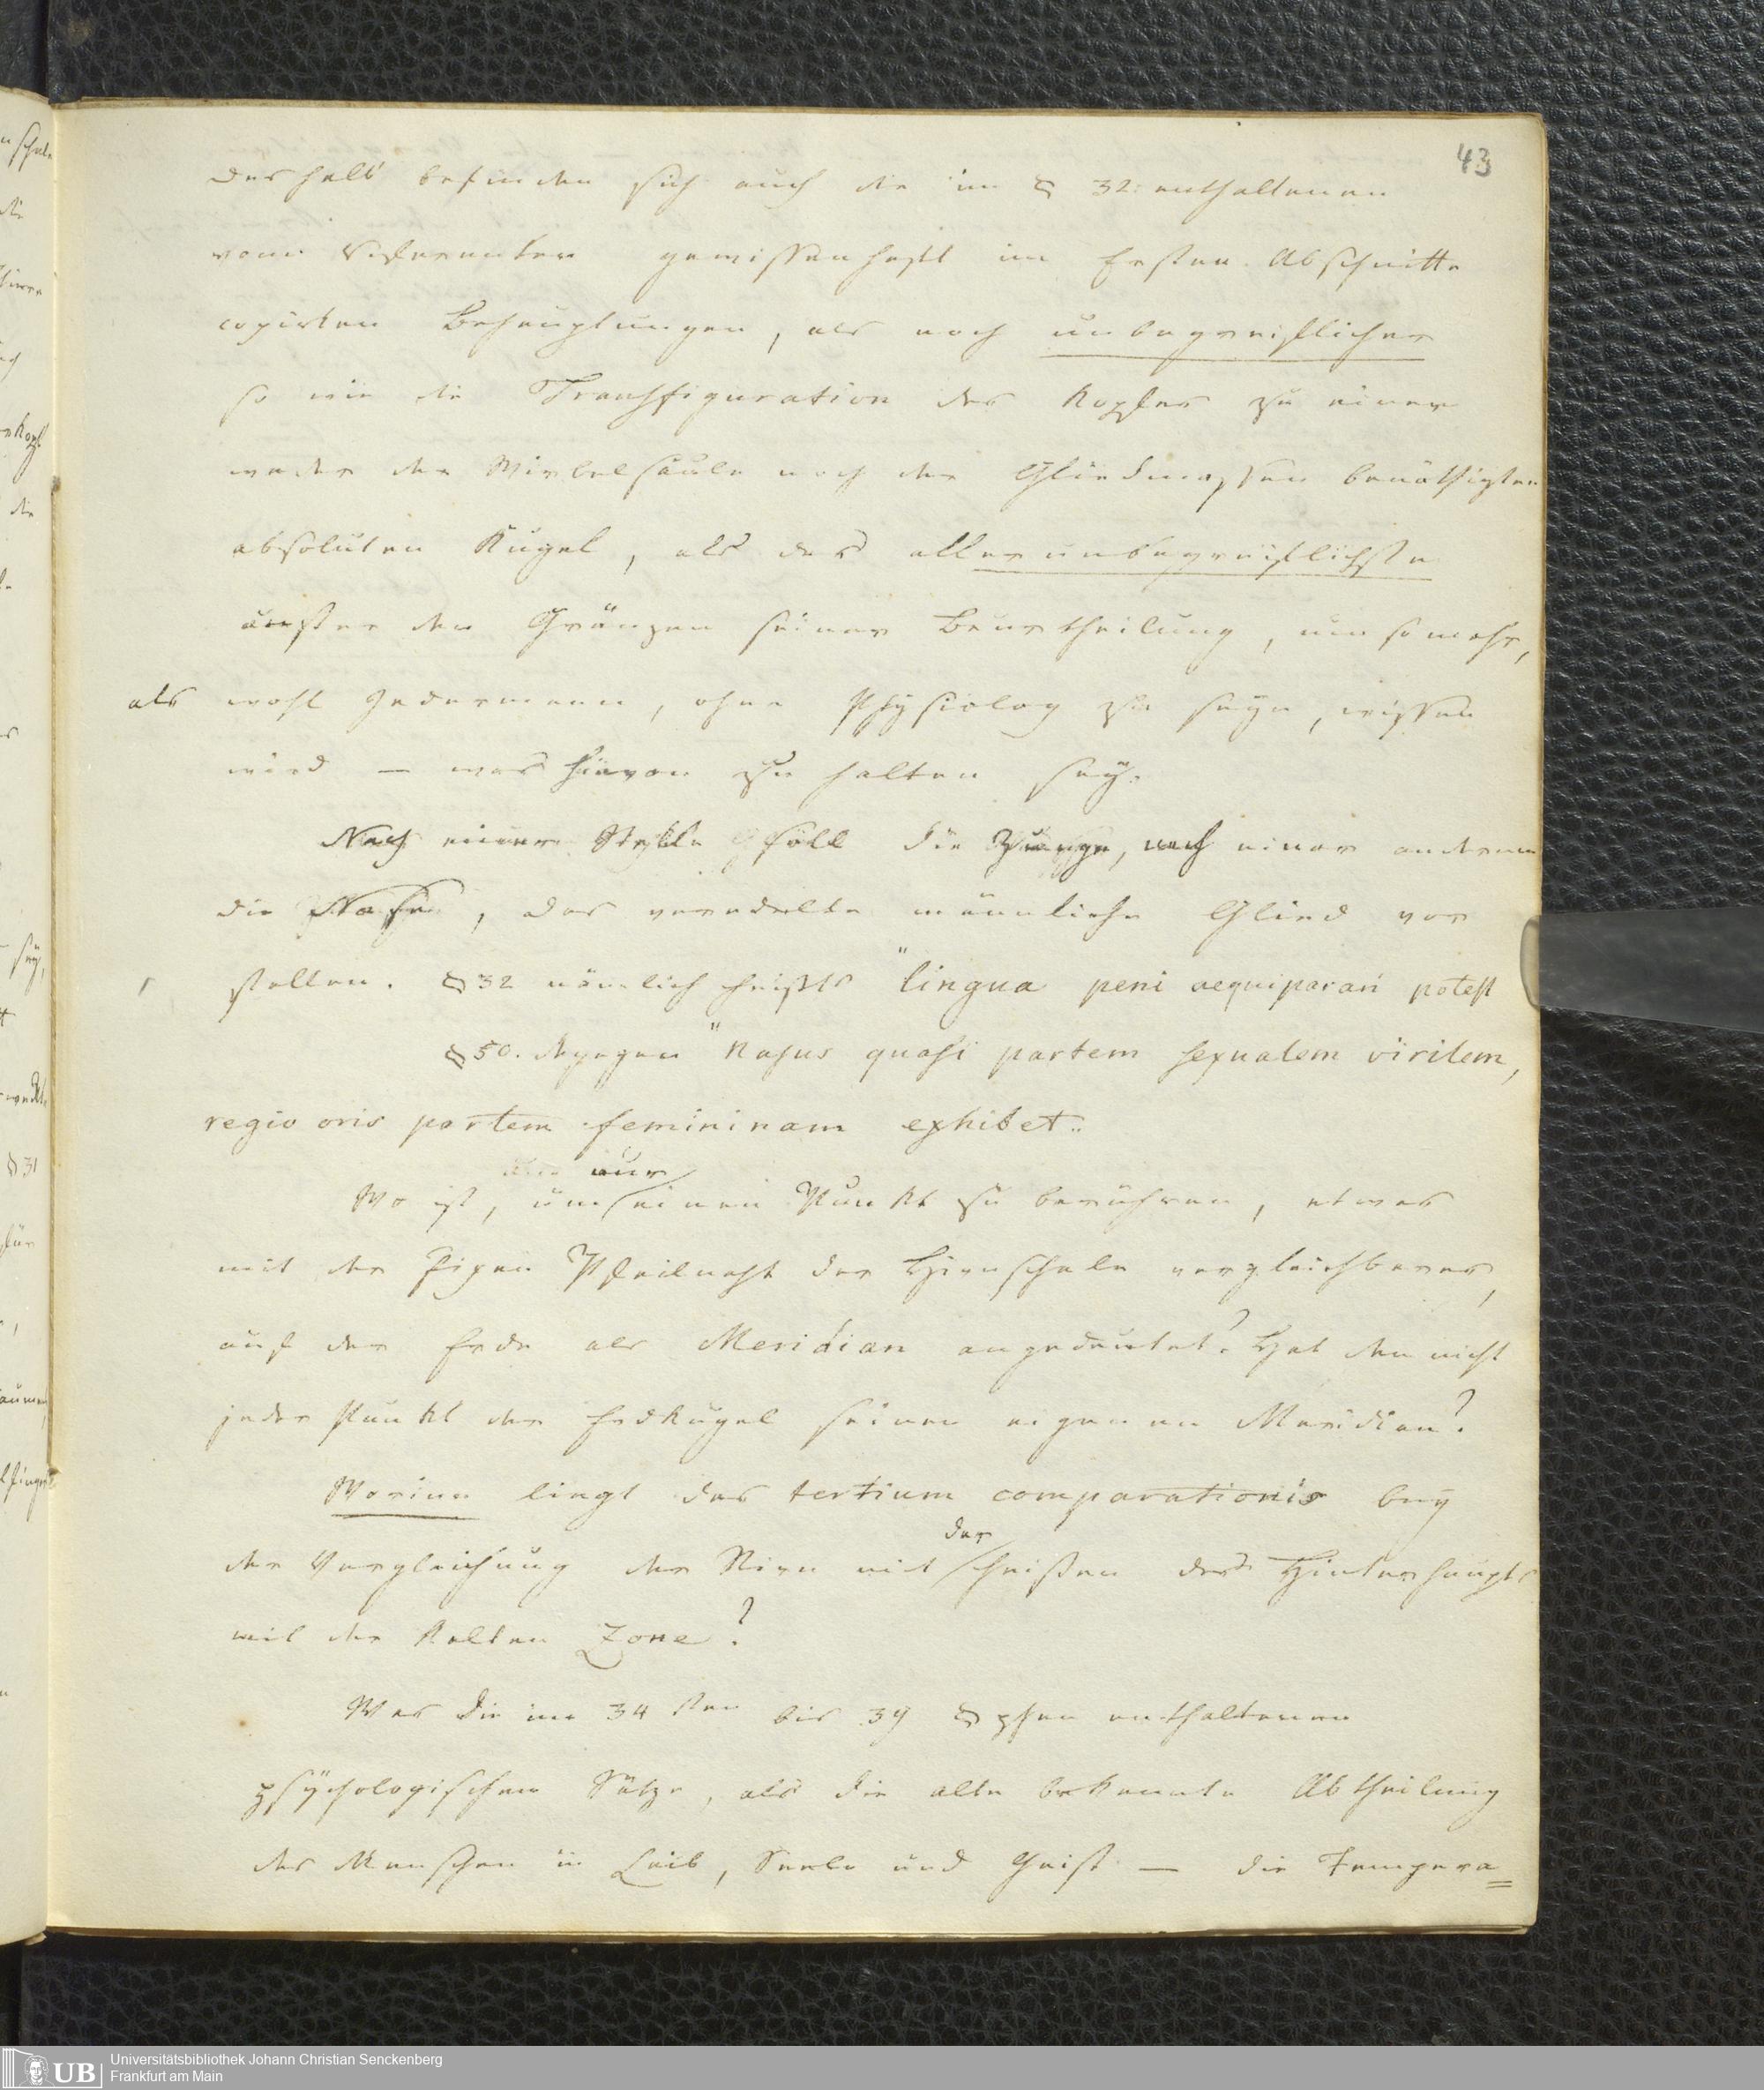 43
deshalb befinden sich auch die im § 32 enthaltenen
vom Referenten gewissenhaft im Ersten Abschnitte
copirten Behauptungen, als noch unbegreiflicher
so wie die Transfiguration des Kopfes zu einer
weder der Wirbelsäule noch der Gliedmassen benöthigten
absoluten Kugel, als das allerunbegreiflichste
ausser den Gränzen seiner Beurtheilung, um so mehr,
als wohl Jedermann, ohne Physiolog zu seyn, wissen
wird — was hievon zu halten sey.
Nach einer Stelle soll die Zunge, nach einer anderen
die Nase, das veredelte männliche Glied vor
stellen. § 32 nämlich heißts "lingua peni aequiparari potest
§ 50. dagegen "Nasus quasi partem sexualem virilem,
regio oris partem femininam exhibet"
nur
Wo ist, um einen Punkt zu berühren, etwas
mit der fixen Pfeilnaht der Hirnschale vergleichbares,
auf der Erde als Meridian angedeutet? Hat den nicht
jeder Punkt der Erdkugel seinen eigenen Meridian?
Worinn liegt das tertium comparationis bey
der
der Vergleichung der Stirn mit heißen des Hinterhaupts
mit der kalten Zone?
Was die im 34 sten bis 39 § phen enthaltenen
psychologischen Sätze, als die alte bekannte Abtheilung
des Menschen in Leib, Seele und Geist — die Tempera=
n schale
die
Kopf
die
sey,
§ 31
für
UB
Universitätsbibliothek Johann Christian Senckenberg
Frankfurt am Main